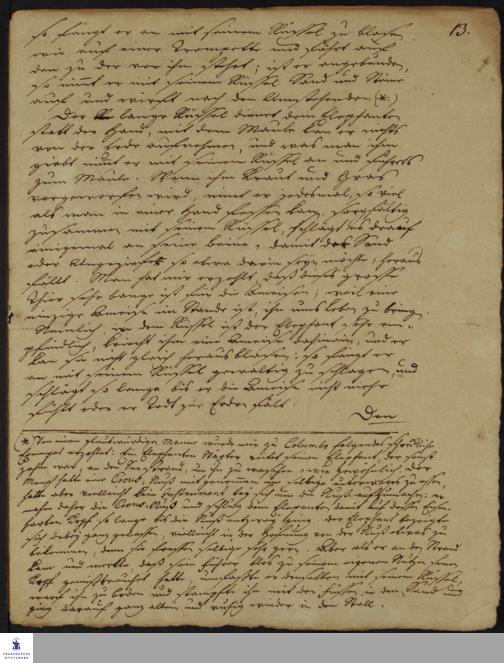 13.
so fängt er an mit seinem Rüssel zu blasen
wie auf einer Trompette und fährt auf
den zu der vor ihm stehet; ist er angebunden,
so nimt er mit seinem Rüssel Sand und Steine
auf und wirft nach den Umstehenden (*.)
Der lange Rüssel dienet dem Elephanten
statt der Hand, mit dem Maule kan er nichts
von der Erde aufnehmen, und was man ihm
giebt nimt er mit seinem Rüssel an und führets
zum Maule. Wenn ihm Kraut und Gras
vorgeworfen wird, nimt er jedesmal, so viel
als man in einer Hand fassen kan, sorgfältig
zusammen mit seinem Rüssel, schlägt es darauf
einigemal an seine Beine, damit der Sand
oder Ungeziefer so etwa darin seyn möchte, heraus
fällt. Man hat mir erzehlt, daß dieses grosse
Thier sehr bange ist für die Ameisen; weil eine
einzige Ameise im Stande ist, ihn ums Leben zu bringen.
Nemlich, in dem Rüssel ist der Elephant sehr em-
pfindlich, kriecht ihm eine Ameise dahinein, und er
kan sie nicht gleich herausblasen; so fängt er
an mit seinem Rüssel gewaltig zu schlagen, und
schlägt so lange bis er die Ameise nicht mehr
fühlt oder er Todt zur Erden fält.
Den
(* Von einem glaubwürdigen Manne wurde mir zu Columbo folgendes schreckliche
Exempel erzehlet: Ein Elephanten Wärter reitet seinen Elephant, der sonst
zahm war, an den Seestrand, um ihn zu waschen, wie gewöhnlich. Der
Mensch hatte eine Cocus-Nuß mit genommen um selbige unterweges zu essen,
hatte aber vielleicht kein Instrument bey sich um die Nuß aufzumachen: er
nahm daher die Cocus-Nuß und schlug dem Elephanten damit auf dessen Eisen-
harten Kopf so lange bis die Nuß entzwey ging. Der Elephant bezeigte
sich dabey ganz gelassen, vielleicht in der Hofnung von der Nuß etwas zu
bekommen, denn sie fressen selbige sehr gern. Aber als er an den Strand
kam, und merkte, daß sein Führer blos zu seinem eigenen Nutzen seinen
Kopf gemißbraucht hatte, umfaßte er denselben mit seinem Rüssel,
warf ihn zu Boden und stampfte ihn mit den Füssen in den Sand und
ging darauf ganz allein und ruhig wieder in den Stall.
FRANCKESCHE
STIFTUNGEN